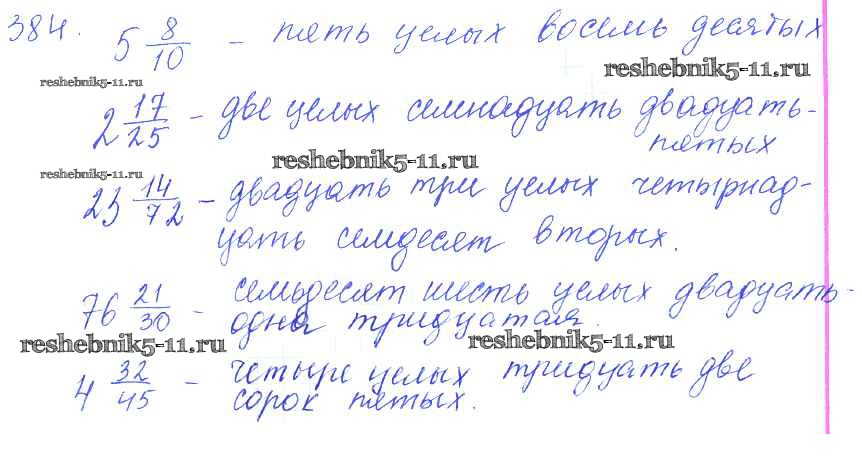 384. 5 8/10 – пять целых восемь десятых
reshebnik5-11.ru
reshebnik5-11.ru
2 17/25 – две целых семнадцать двадцать-
пятых
reshebnik5-11.ru
reshebnik5-11.ru
23 14/72 – двадцать три целых четырнад-
цать семдесят вторых.
76 21/30 – семьдесят шесть целых двадцать-
одна тридцатая.
reshebnik5-11.ru
reshebnik5-11.ru
4 32/45 – четыре целых тридцать две
сорок пятых.